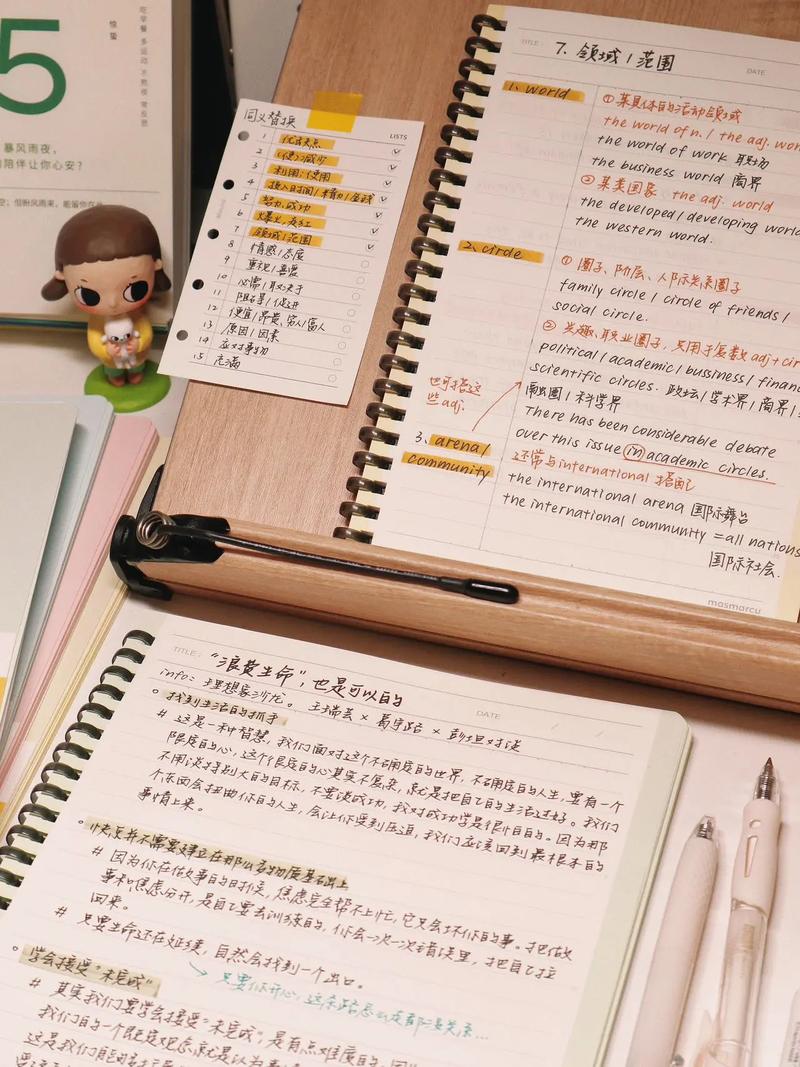 5
惊蛰
吃早餐 多运动 不熬夜 常反思
暴风雨夜,
陪伴让你心安?
同义替换
LISTS
1 优缺点
2 (使)减少
3 利用;使用
4 投入时间/精力/金钱
5 努力,成功
6
7 领域/范围
8 情感/态度
9 重视/喜爱
10 必需/取决于
11 阻碍/促进
12 便宜/昂贵、穷人/富人
13 原因/因素
14 应对事物
15 充满
TITLE: 7. 领域/范围
DATE
1. world
① 某具体的活动领域
the world of n. / the adj. wor
the world of work 职场
the business world 商界
② 某类国家 the adj. world
the developed/developing worl
the western world.
2. circle
① 圈子、阶层、人际关系圈子
family circle / circle of friends /
social circle.
② 兴趣、职业圈子,只用于复数 adj+cir
political/academic/bussiness/finan
scientific circles. 政坛/学术界/商界/
融圈/科学界
也可搭这
些adj.
There has been considerable debate
over this issue in academic circles.
3. arena/
community
还常与international 搭配
the international arena 国际舞台
the international community = all nations
国际社会.
masmarcu
TITLE: “浪费生命”,也是可以的
DATE / /
info: 理想家沙龙。 王瑞芸 × 葛宇路 × 彭坦对谈
找到生活的抓手
# 这是一种智慧,我们面对这个不确定的世界,不确定的人生,要有一个
限度的心,这个很度的心其实不复杂,就是把自己的生活过好。我们
不用谈特别大的目标,不要谈成功,我对成功学是很怕的。因为那
个东西会扭曲你的人生,会让你受到压迫,我们应该回到最根本的
事情上来。
快乐并不需要建立在那么多物质基础上
# 因为你在做事的时候,焦虑完全帮不上忙,它又会坏你的事。把做
事和焦虑分开,是自己要去训练的,你会一次一次错误里,把自己拉
回来。
# 只要生命还在延续,自然会找到一个出口。
只要你开心,这条路怎么走都没关系...
学会接受“未完成”
# 其实我们要学会接受“未完成”,是有点难度的,因
我们的一个既定观念就是认为事